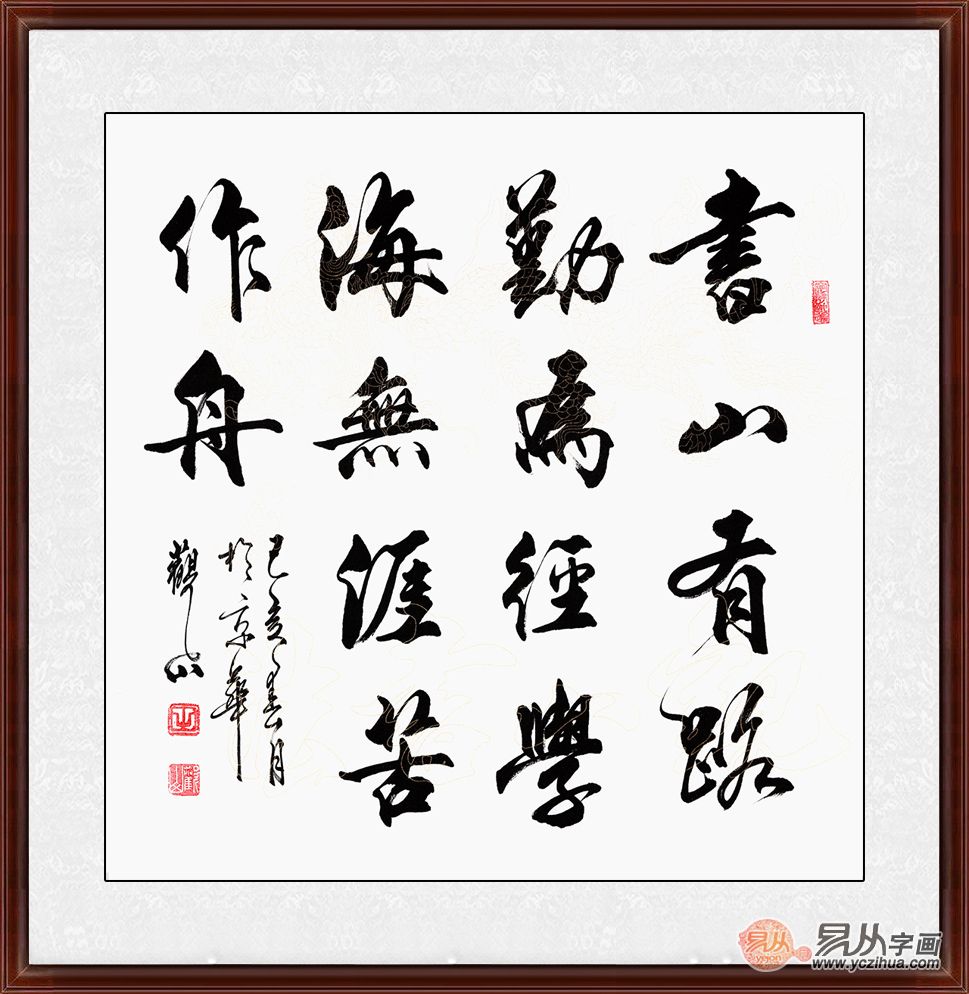 書山有路
勤為徑學
海無涯苦
作舟
己亥春月
於京華
觀山
易从字画
www.yczihua.com
yicon